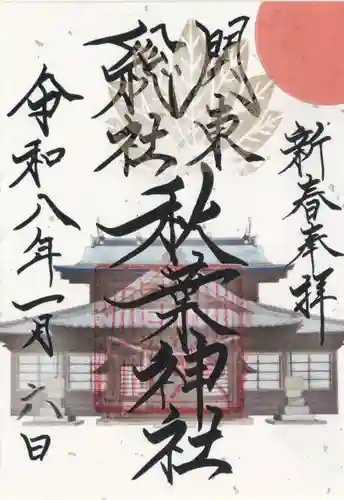 新春奉拝
関東
総社
秋葉神社
令和八年一月六日